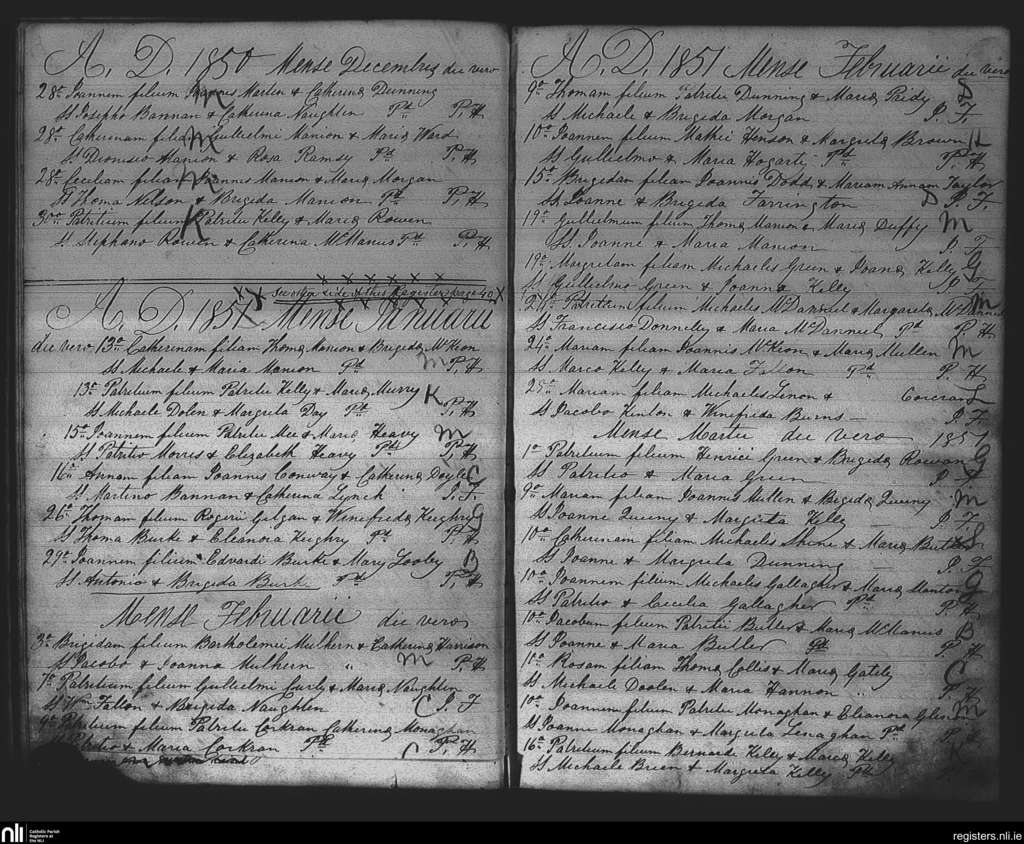 A. D. 1850 Mense Decembris die vero
28a Joannem filium Joannis Martin & Catherina Dunning M
SS Josepho Bannan & Catherina Naughlin Pd P. H
28a Catherinam filiam Gulielmi Manion & Maria Ward M
SS Dionisio Manion & Rosa Ramsy Pd P. H
28a Ceciliam filiam Joannis Manion & Maria Morgan M
SS Thoma Nelson & Brigida Manion Pd P. H
30a Patritium filium Patritii Kelly & Maria Rowen K
SS Stephano Rowen & Catherina McManus Pd P. H
See other side of this Register page 40
A. D. 1851 Mense Januarii
die vero 13a Catherinam filiam Thoma Manion & Brigida McKeon M
SS Michaele & Maria Manion Pd P. H
13a Patritium filium Patritii Kelly & Maria Murry K
SS Michaele Dolen & Margrita Day Pd P. H
15a Joannem filium Patritii Mee & Maria Heavy M
SS Patritio Morris & Elizabeth Heavy Pd P. H
16a Annam filiam Joannis Conway & Catherina Doyle C
SS Martino Bannan & Catherina Lynch P. F.
26a Thomam filium Rogerii Gilgan & Winefrida Keighry G
SS Thoma Burke & Eleanora Keighry Pd P. H
29a Joannem filium Edvardi Burke & Mary Looley B
SS Antonio & Brigida Burk Pd P. H
Mense Februarii die vero
3a Brigidam filiam Bartholemii Mulhern & Catherina Harrison
SS Jacobo & Joanna Mulhern " M P. H
7a Patritium filium Gulielmi Curly & Maria Naughlin
SS Wm Fallon & Brigida Naughlen C P. F
9a Patritium filium Patritii Corkran Catherina Monaghan
SS Patritio & Maria Corkran Pd C P. H
A. D. 1851 Mense Februarii die vero
9a Thomam filium Patritii Dunning & Maria Pridy D
SS Michaele & Brigida Morgan P. F.
10a Joannem filium Mathei Henson & Margrita Brown H
SS Gulielmo & Maria Hogarti Pd P. H
15a Brigidam filiam Joannis Dodd & Mariam Annam Taylor
SS Joanne & Brigida Farrington D P. F
19a Gulielmum filium Thoma Manion & Maria Duffy M
SS Joanne & Maria Manion P. F.
19a Margritam filiam Michaelis Green & Joana Kelly G
SS Gulielmo Green & Joanna Kelly P. F
24a Patritium filium Michaelis McDanniel & Margarita McDanniel M
SS Francisco Donneley & Maria McDanniel Pd P. H.
24a Mariam filiam Joannis McKeon & Maria Mullen M
SS Marco Kelly & Maria Fallon Pd P. H
25a Mariam filiam Michaelis Lenon & Corcran L
SS Jacobo Kinlon & Winefrida Burns — P. F.
Mense Martii die vero 1851
1a Patritium filium Henrici Green & Brigida Rowan G
SS Patritio & Maria Green P. F
9a Mariam filiam Joannis Mullen & Brigida Queeny M
SS Joanne Queeny & Margrita Kelly — P. F.
10a Catherinam filiam Michaelis Shine & Maria Butler S
SS Joanne & Margrita Dunning — P. F
10a Joannem filium Michaelis Gallagher & Maria Manton G
SS Patritio & Cecilia Gallagher Pd P. H
10a Jacobum filium Patritii Butler & Maria McManus B
SS Joanne & Maria Butler Pd P. H
11a Rosam filiam Thoma Collis & Maria Gately C
SS Michaele Doolen & Maria Hannon " P. H
10a Joannem filium Patritii Monaghan & Eleanora Glennon M
SS Joanne Monaghan & Margrita Lenaghan Pd P.
16a Patritium filium Bernardi Kelly & Maria Kelly K
SS Michaele Brien & Margrita Kelly Pd
nli Catholic Parish
Registers at
the NLI
registers.nli.ie